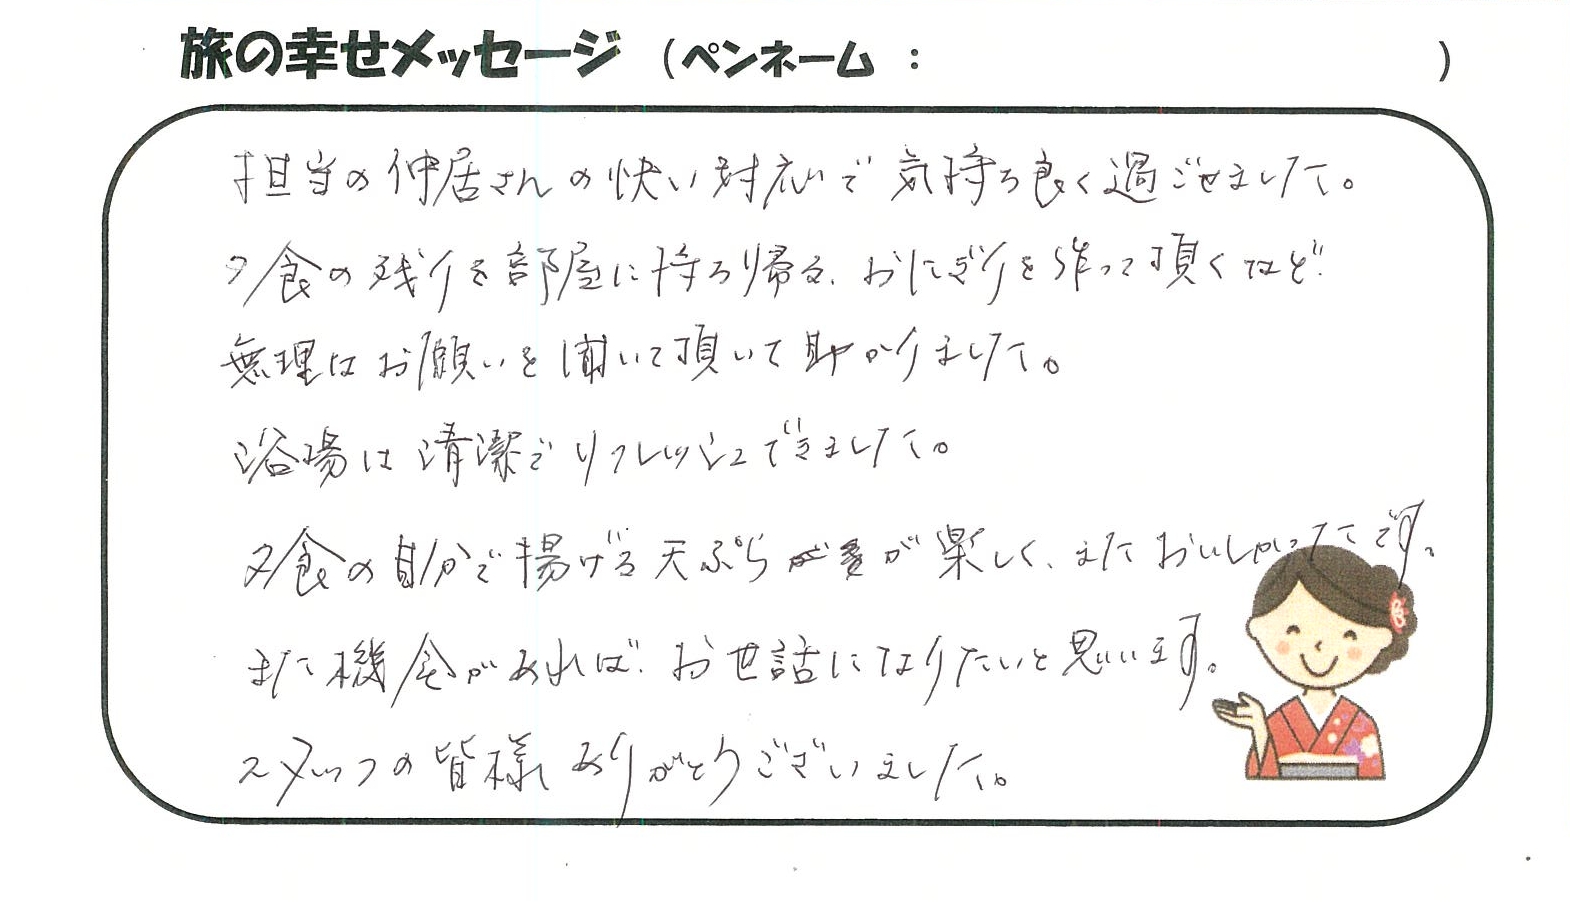 旅の幸せメッセージ （ペンネーム ： ）
担当の仲居さんの快い対応で気持ち良く過ごせました。
夕食の残りを部屋に持ち帰る、おにぎりを作って頂くなど、
無理なお願いを聞いて頂いて助かりました。
浴場は清潔でリフレッシュできました。
夕食の自分で揚げる天ぷらが楽しく、またおいしかったです。
また機会があれば、お世話になりたいと思います。
スタッフの皆様ありがとうございました。